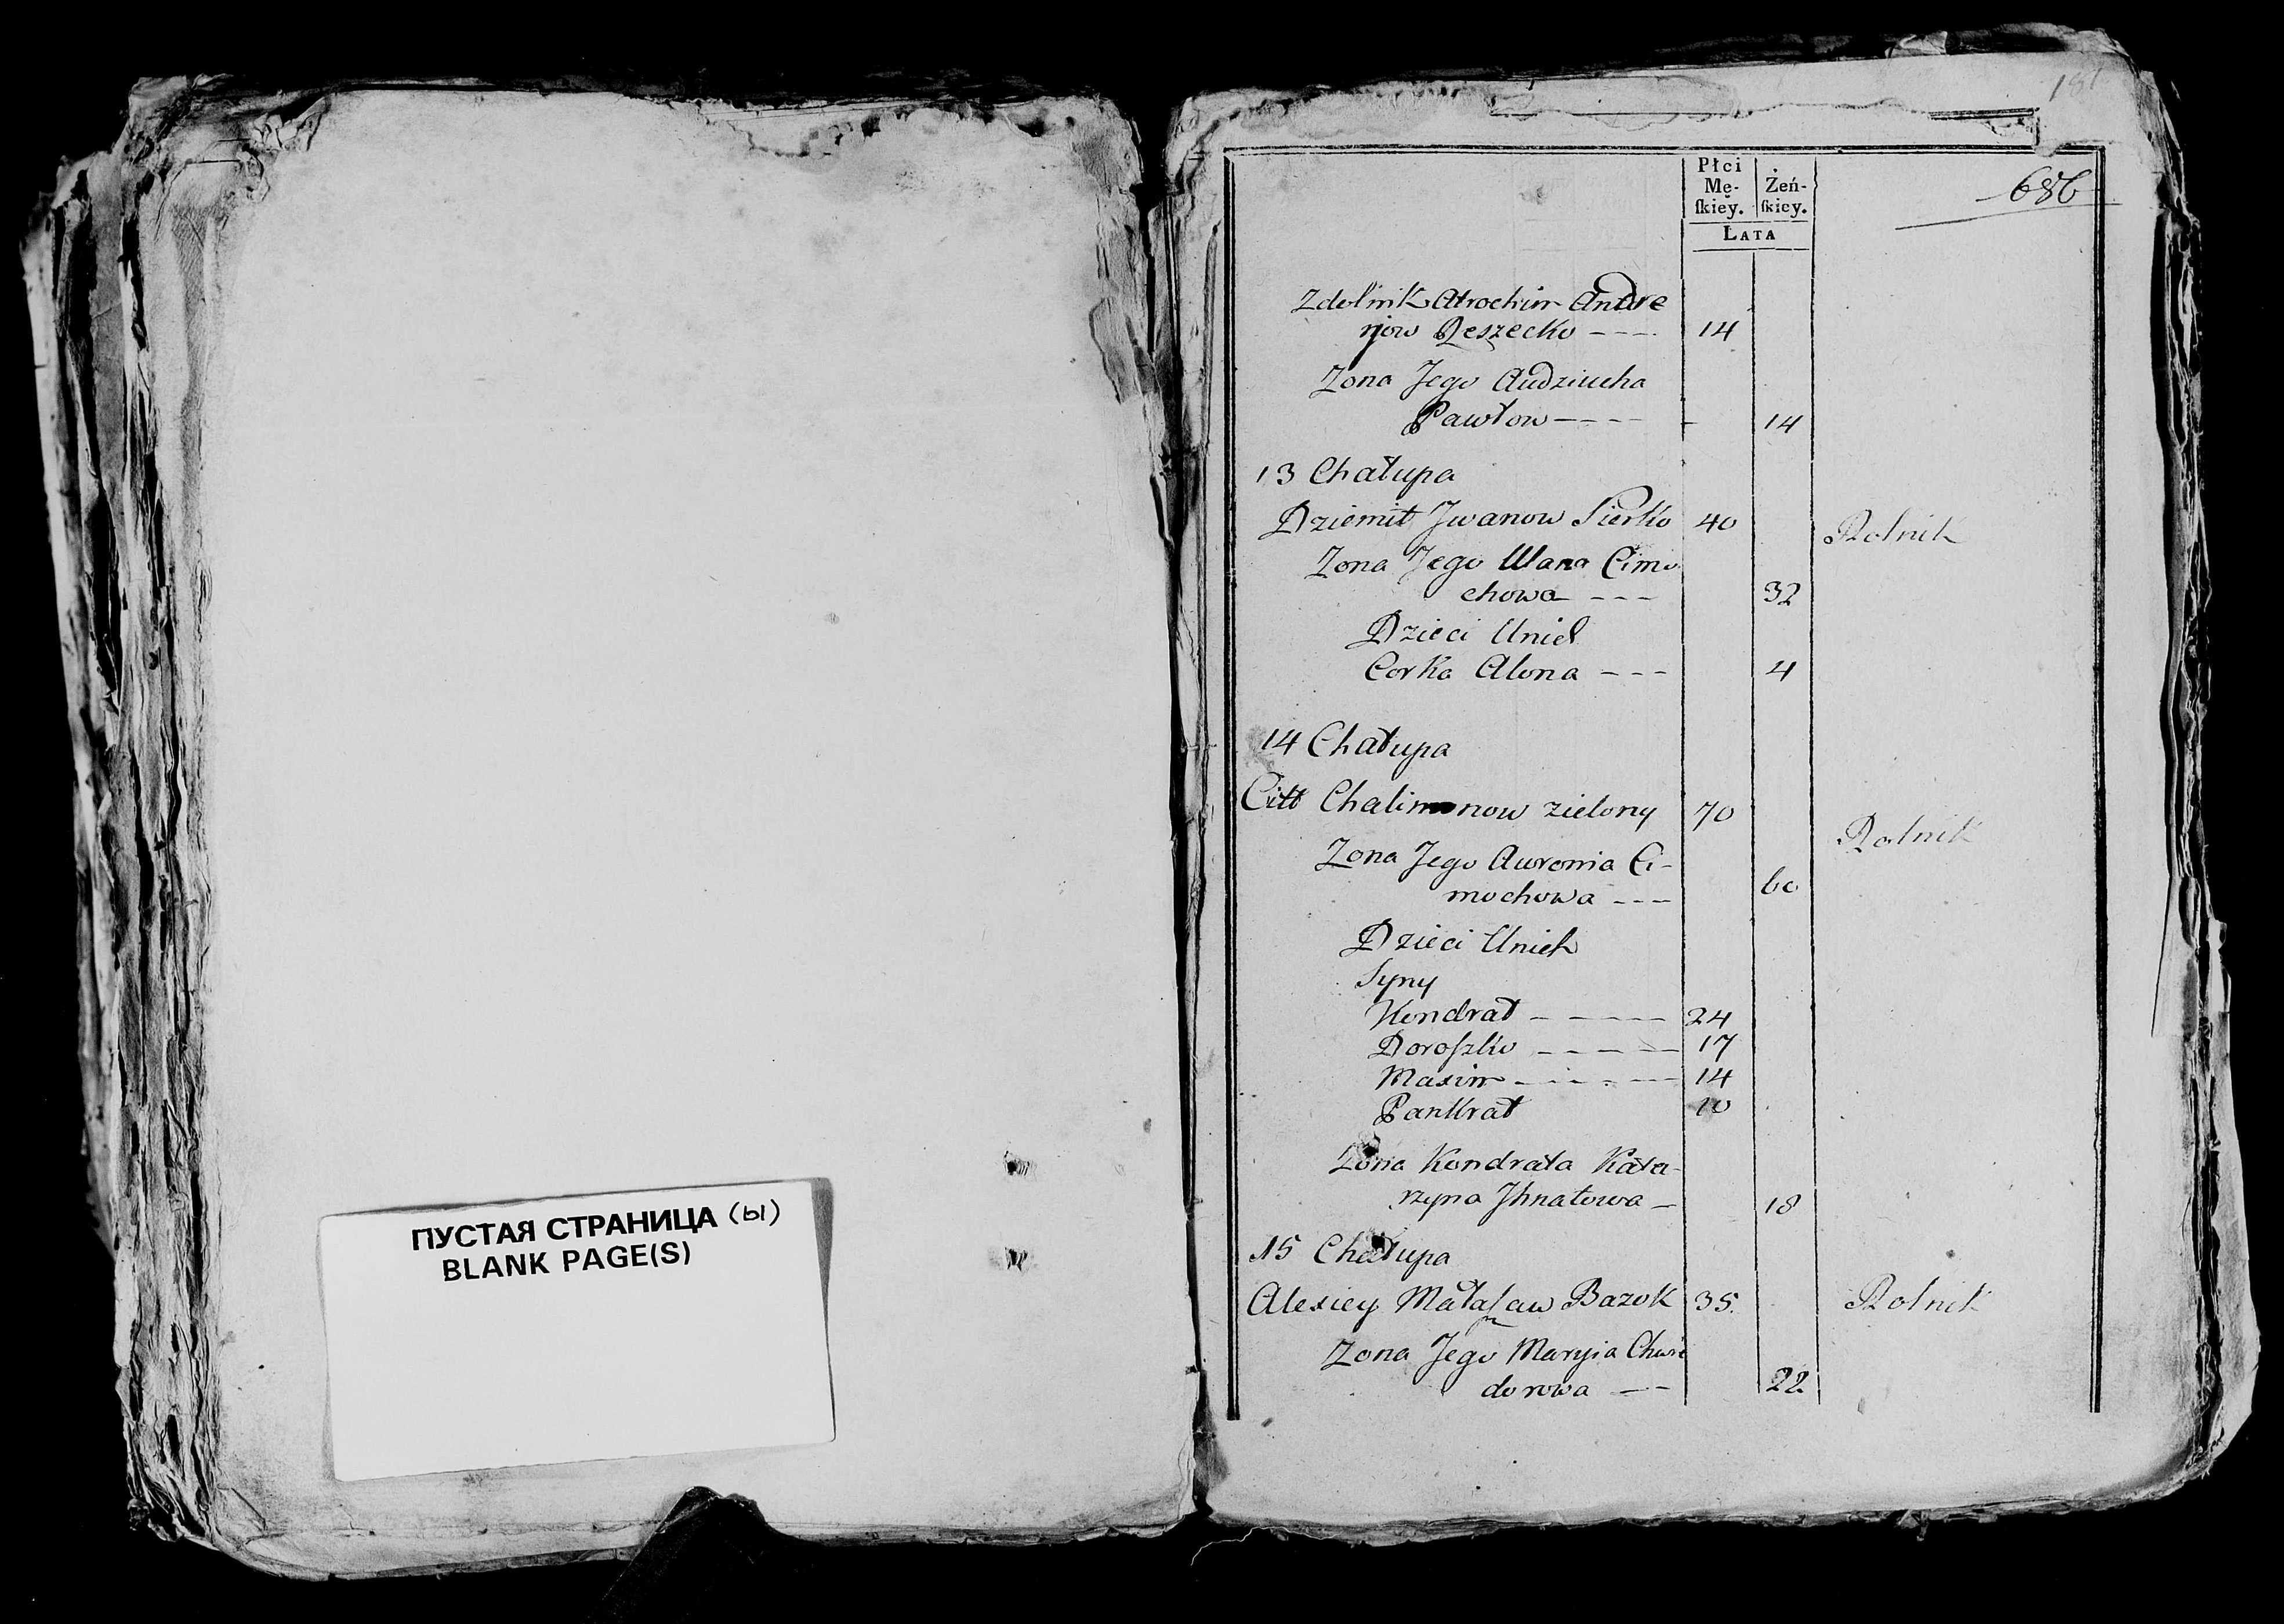 ПУСТАЯ СТРАНИЦА (ы)
BLANK PAGE(S)
181
686
Płci
Mę- Żeń-
ſkiey. ſkiey.
LATA
Zdolnik Atrochim Andre
rjow Reszecko - - - 14
Zona Jego Audziucha
Pawłow - - - - 14
13 Chałupa
Dziemit Jwanow Sierko 40 Rolnik
Zona Jego Ulana Cimo
chowa - - - 32
Dzieci Unich
Corka Alona - - - 4
14 Chałupa
Citt Chalimonow zielony 70 Rolnik
Zona Jego Awronia Ci-
mochowa - - - 60
Dzieci Unich
Syny
Kondrat - - - - 24
Doroſzko - - - - - 17
Maxim - - - - - 14
Pankrat 10
Zona Kondrata Kata-
rzyna Jhnatowa - 18
15 Chałupa
Alexiey Bazok 35. Rolnik
Zona Jego Maryia Chwe
dorowa - - 22